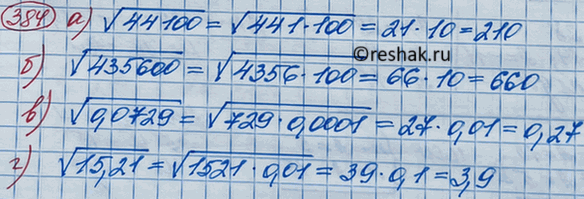 384 а) √44100 = √441·100 = 21·10 = 210
©reshak.ru
б) √435600 = √4356·100 = 66·10 = 660
в) √0,0729 = √729·0,0001 = 27·0,01 = 0,27
г) √15,21 = √1521·0,01 = 39·0,1 = 3,9